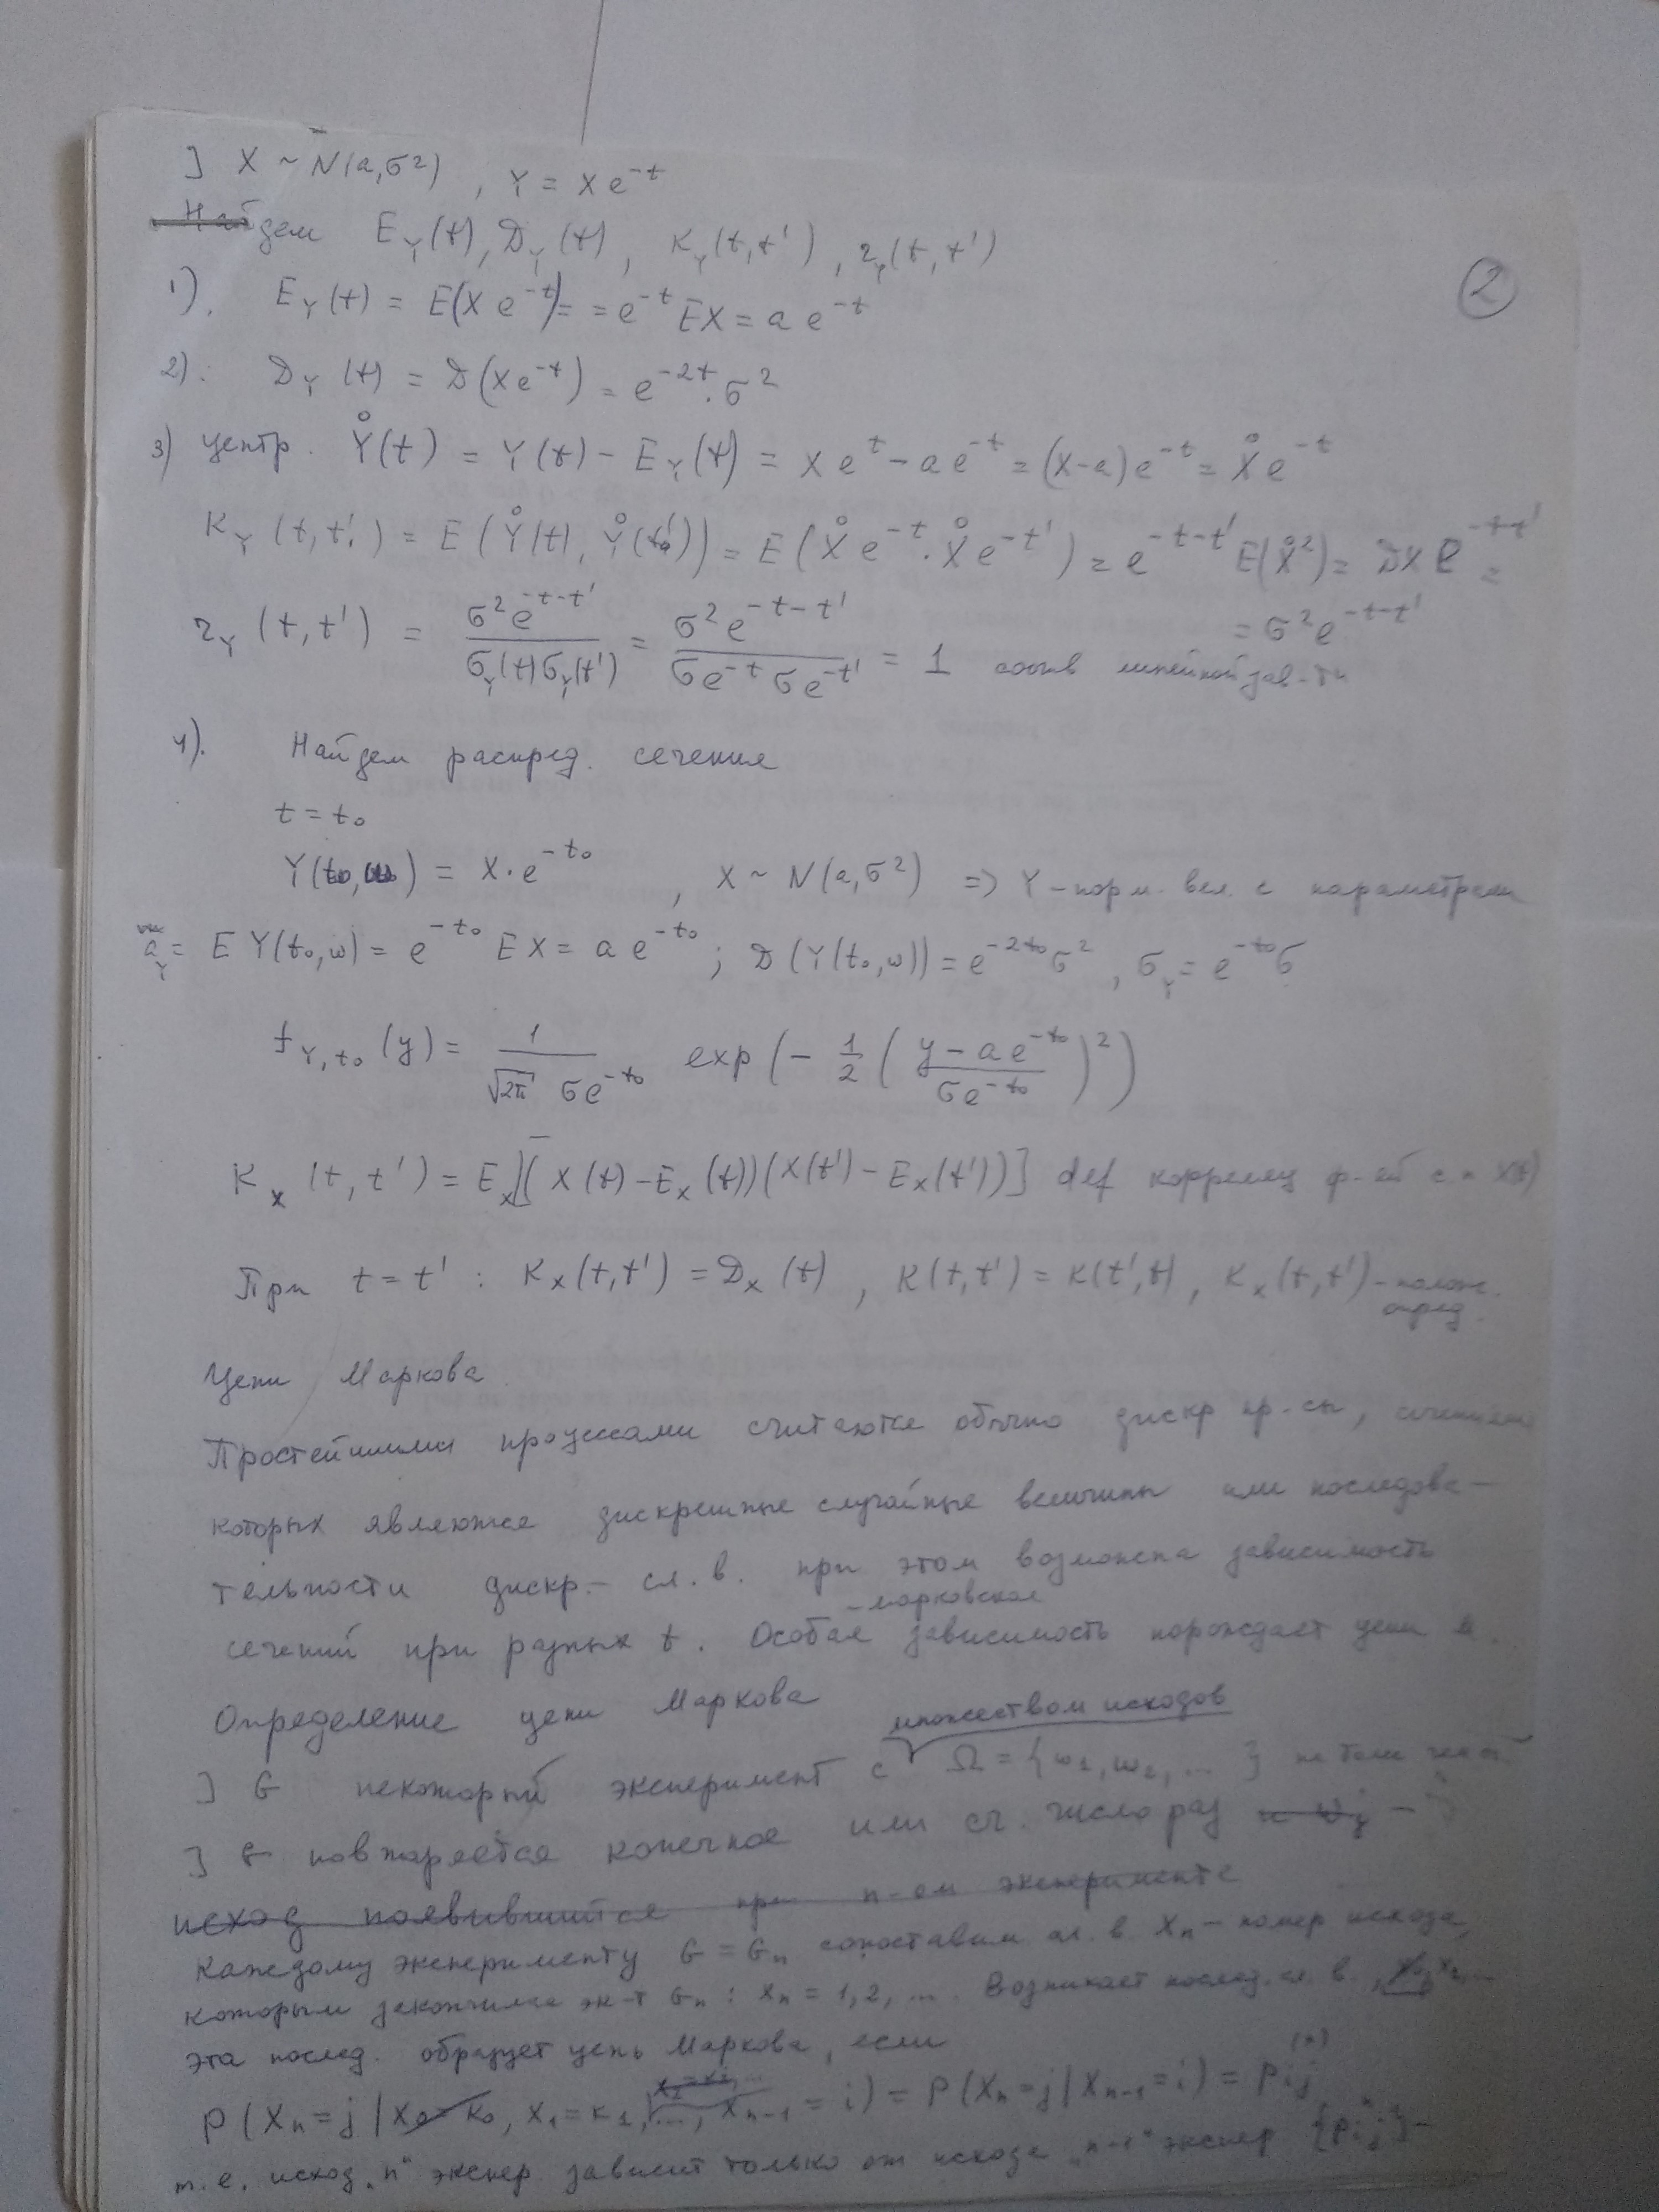 ] X ~ N(a,σ²) , Y = X e^{-t}
Найдем E_Y(t), D_Y(t), K_Y(t,t'), r_Y(t,t')
2
1). E_Y(t) = E(X e^{-t}) = = e^{-t} EX = a e^{-t}
2). D_Y(t) = D(X e^{-t}) = e^{-2t} · σ²
3) центр. Y̊(t) = Y(t) − E_Y(t) = X e^{t} − a e^{-t} = (X−a) e^{-t} = X̊ e^{-t}
K_Y(t,t') = E(Y̊(t), Y̊(t')) = E(X̊ e^{-t} · X̊ e^{-t'}) = e^{-t-t'} E(X̊²) = DX e^{-t-t'} =
= σ² e^{-t-t'}
r_Y(t,t') = σ² e^{-t-t'} / (σ_Y(t) σ_Y(t')) = σ² e^{-t-t'} / (σe^{-t} σe^{-t'}) = 1 линейной зав-ти
4). Найдем распред. сечения
t = t₀
Y(t₀,ω) = X · e^{-t₀} , X ~ N(a,σ²) => Y – норм. вел. с параметрами
a_Y = E Y(t₀,ω) = e^{-t₀} EX = a e^{-t₀} ; D(Y(t₀,ω)) = e^{-2t₀} σ² , σ_Y = e^{-t₀} σ
f_{Y,t₀}(y) = 1 / (√2π σe^{-t₀}) exp(− 1/2 ((y − a e^{-t₀}) / (σe^{-t₀}))²)
K_X(t,t') = E_X[(X(t) − E_X(t))(X(t') − E_X(t'))] def коррелец ф-ей с п X(t)
При t = t' : K_X(t,t') = D_X(t) , K(t,t') = K(t',t) , K_X(t,t') – полож.
опред.
Цепи Маркова
Простейшими процессами считаются обычно дискр пр-сы, сечениями
которых являются дискретные случайные величины или последова-
тельности дискр. сл. в. при этом возможна зависимость
– марковская
сечений при разных t. Особая зависимость порождает цепи М.
Определение цепи Маркова
множеством исходов
] G некоторый эксперимент с Ω = {ω₁, ω₂, ...} не более чем
] G повторяется конечное или сч. число раз и ω_j –
исход появившийся при n-ом эксперименте
Каждому эксперименту G = G_n сопоставим сл. в. X_n – номер исхода,
которым закончился эк-т G_n : X_n = 1, 2, .... Возникает послед. сл. в.
эта послед. образует цепь Маркова, если
P(X_n = j | X₀ = k₀, X₁ = k₁, ..., X_{n-1} = i) = P(X_n = j | X_{n-1} = i) = p_{ij}^{(n)}
т.е. исход „n“ экспер. зависит только от исхода „n-1“ экспер {p_{ij}} –